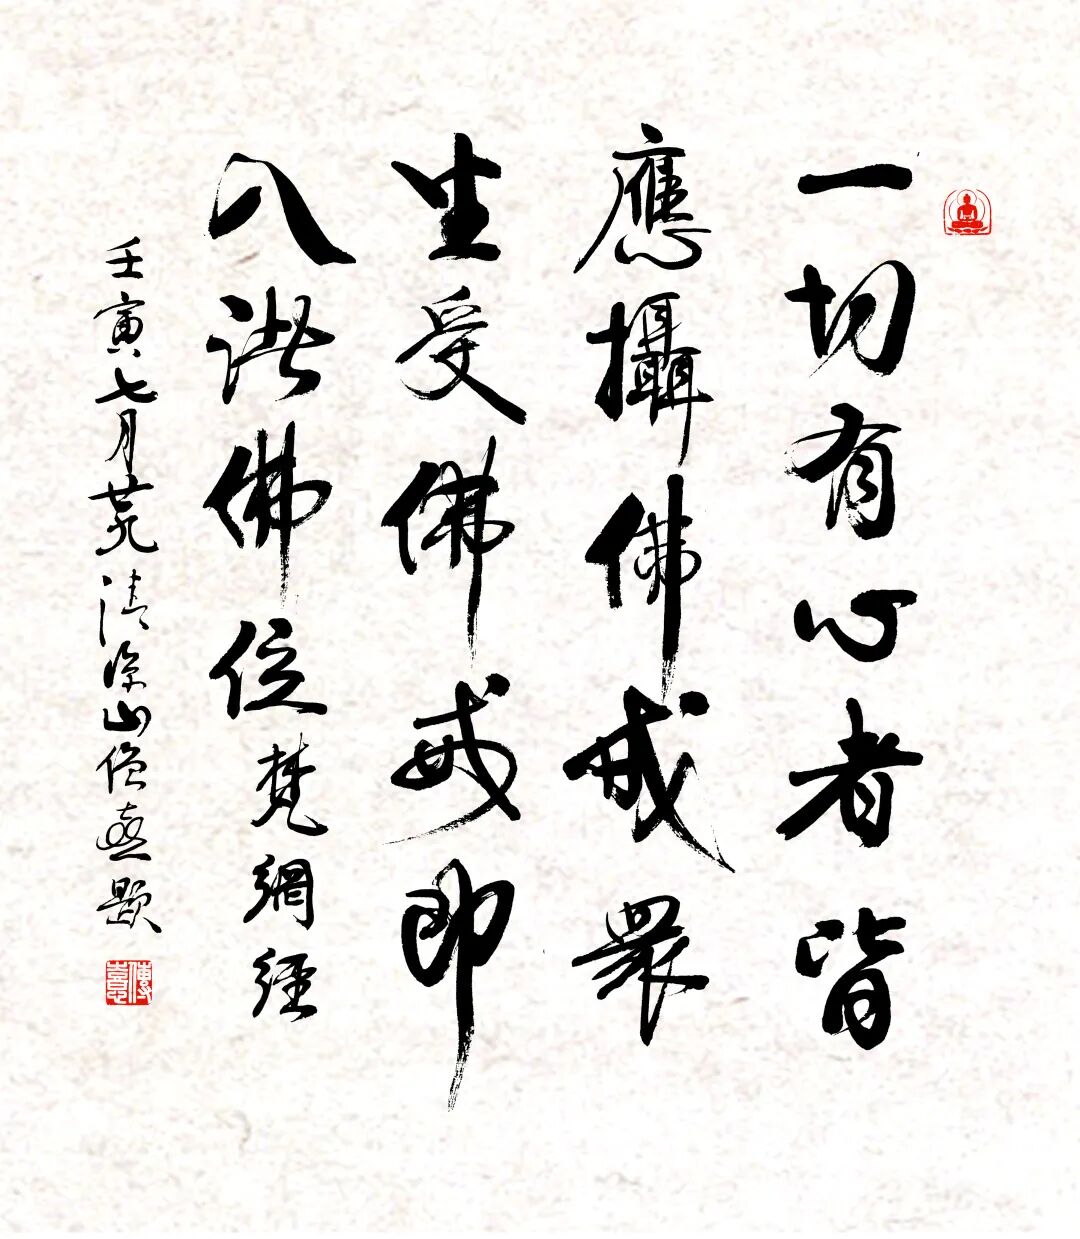 一切有心者皆
應攝佛戒眾
生受佛戒即
入諸佛位梵網經
壬寅七月荒清涼山僧意題